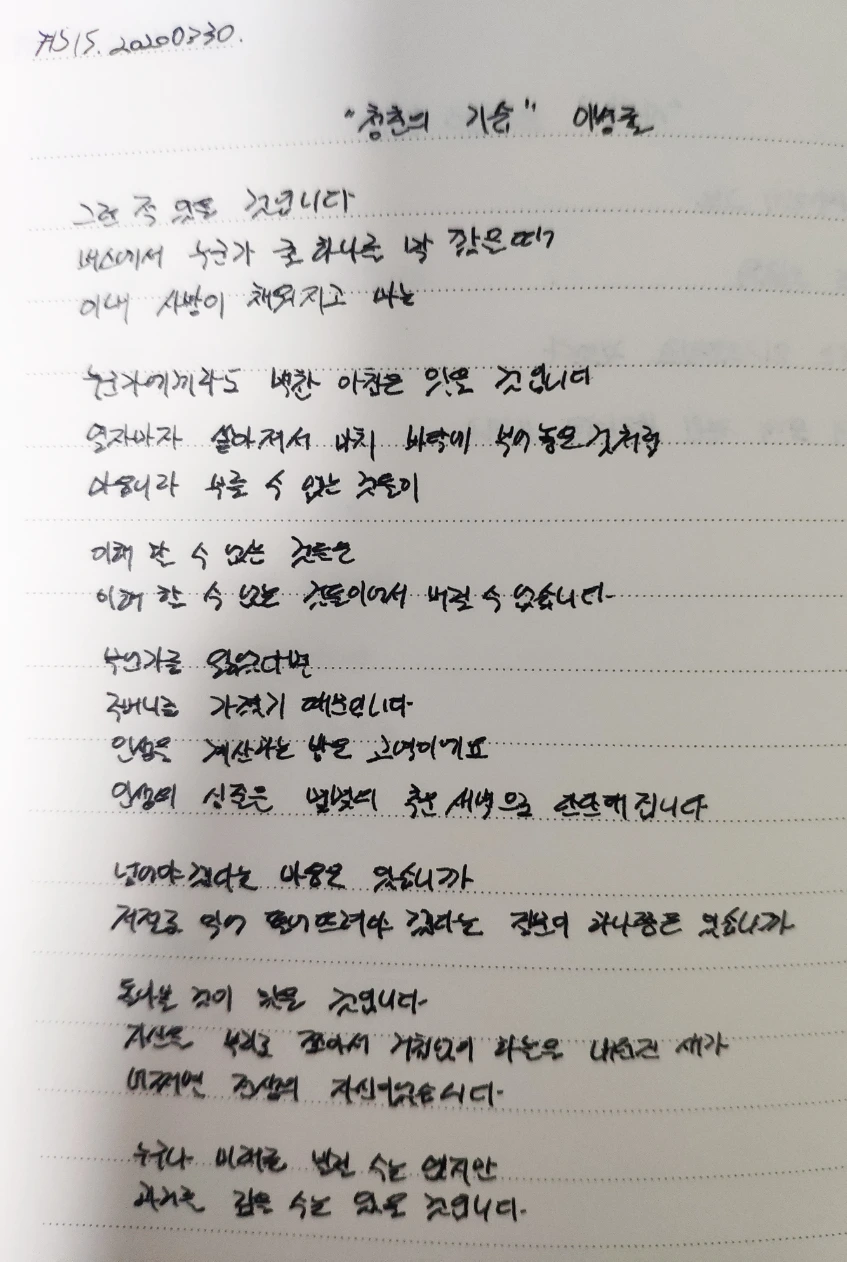 귀515. 20200330.
"청춘의 기습" 이병률
그런 적 있을 것입니다
버스에서 누군가 귤 하나를 막 깠을 때
이내 사방이 채워지고 마는
누군가에게라도 벅찬 아침은 있을 것입니다
열자마자 쏟아져서 마치 바닥에 부어놓은 것처럼
마음이라 부를 수 없는 것들이
이해 할 수 없는 것들은
이해 할 수 없는 것들이어서 버릴 수 없습니다.
무언가를 잃었다면
주머니를 가졌기 때문입니다.
인생을 계산하는 밤은 고역이에요
인생의 심줄은 몇몇의 추운 새벽으로 단단해집니다
넘어야겠다는 마음은 있습니까
저절로 익어 떨어뜨려야 겠다는 질문이 하나쯤은 있습니까
돌아볼 것이 있을 것입니다.
자신을 부리로 쪼아서 거침없이 하늘을 내던진 새가
어쩌면 전생의 자신이었습니다.
누구나 미래를 빌릴 수는 없지만
과거를 갚을 수는 있을 것입니다.